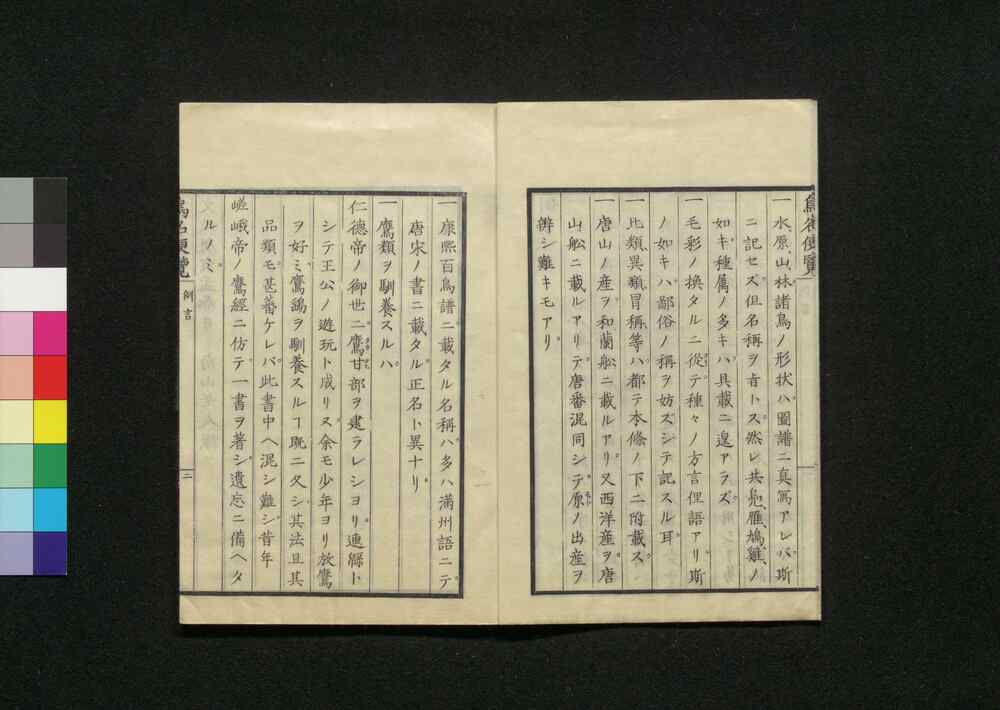 鳥名便覧
一水原山林諸鳥ノ形状ハ圖譜ニ真寫アレバ斯
ニ記セズ但名稱ヲ旨トス然レ共鳬、雁、鳩、雞ノ
如キ種属ノ多キハ具載ニ遑アラズ
一毛彩ノ換タルニ從テ種々ノ方言俚語アリ斯
ノ如キハ鄙俗ノ稱ヲ妨ズシテ記スル耳
一比類、異類、冒稱等ハ都テ本條ノ下ニ附載ス
一唐山ノ産ヲ和蘭舩ニ載ルアリ又西洋産ヲ唐
山舩ニ載ルアリテ唐番混同シテ原ノ出産ヲ
辨シ難キモアリ
一康熙百鳥譜ニ載タル名稱ハ多ハ満州語ニテ
唐宋ノ書ニ載タル正名ト異ナリ
一鷹類ヲ馴養スルハ
仁德帝ノ御世ニ鷹甘部ヲ建ラレシヨリ連緜ト
シテ王公ノ遊玩ト成リヌ余モ少年ヨリ放鷹
ヲ好ミ鷹鷂ヲ馴養スルヿ既ニ久シ其法且其
品類モ甚蕃ケレバ此書中ヘ混シ難シ昔年
嵯峨帝ノ鷹經ニ仿テ一書ヲ著シ遺忘ニ備ヘタ
ルノミ
鳥名便覧 例言 二